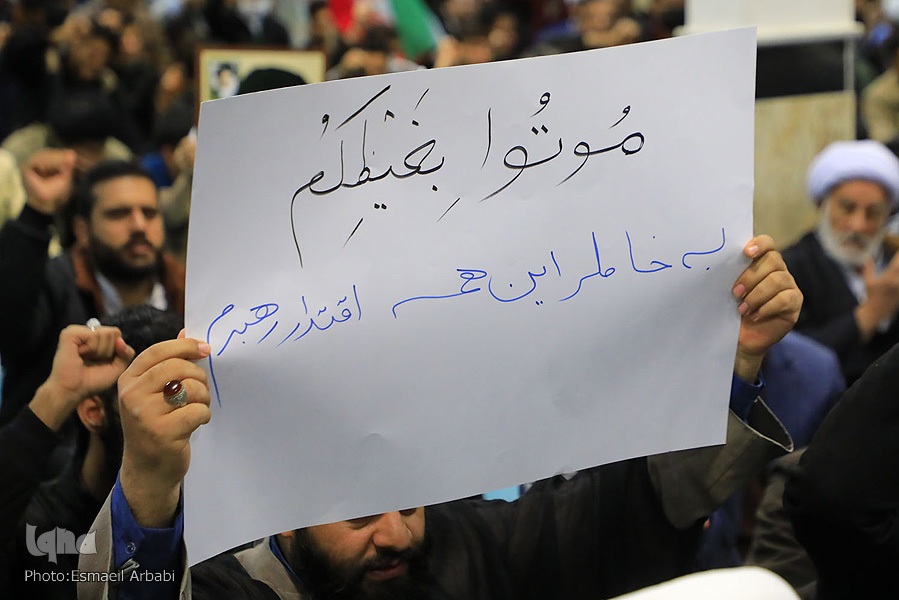 مُوتُوا بِغَيْظِكُمْ
به خاطر این همه اقتدار رهبرم
iqna
Photo:Esmaeil Arbabi